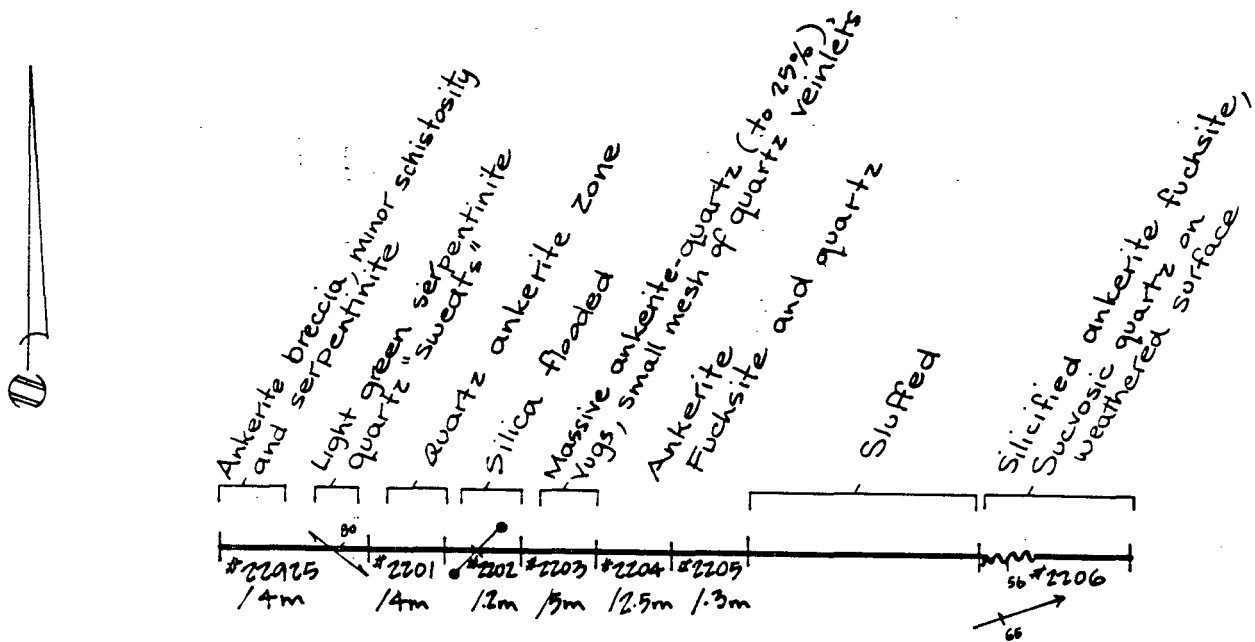 Ankerite breccia, minor schistosity
and serpentinite
Light green serpentinite
quartz "sweats"
Quartz ankerite zone
Silica flooded
Massive ankerite-quartz (to 25%),
Vugs, small mesh of quartz veinlets
Ankerite
Fuchsite and quartz
Sluffed
Silicified ankerite fuchsite,
Sucvosic quartz on
weathered surface
80
#22925
/4m
#2201
/4m
#2202
/.2m
#2203
/5m
#2204
/2.5m
#2205
/.3m
56
#2206
65